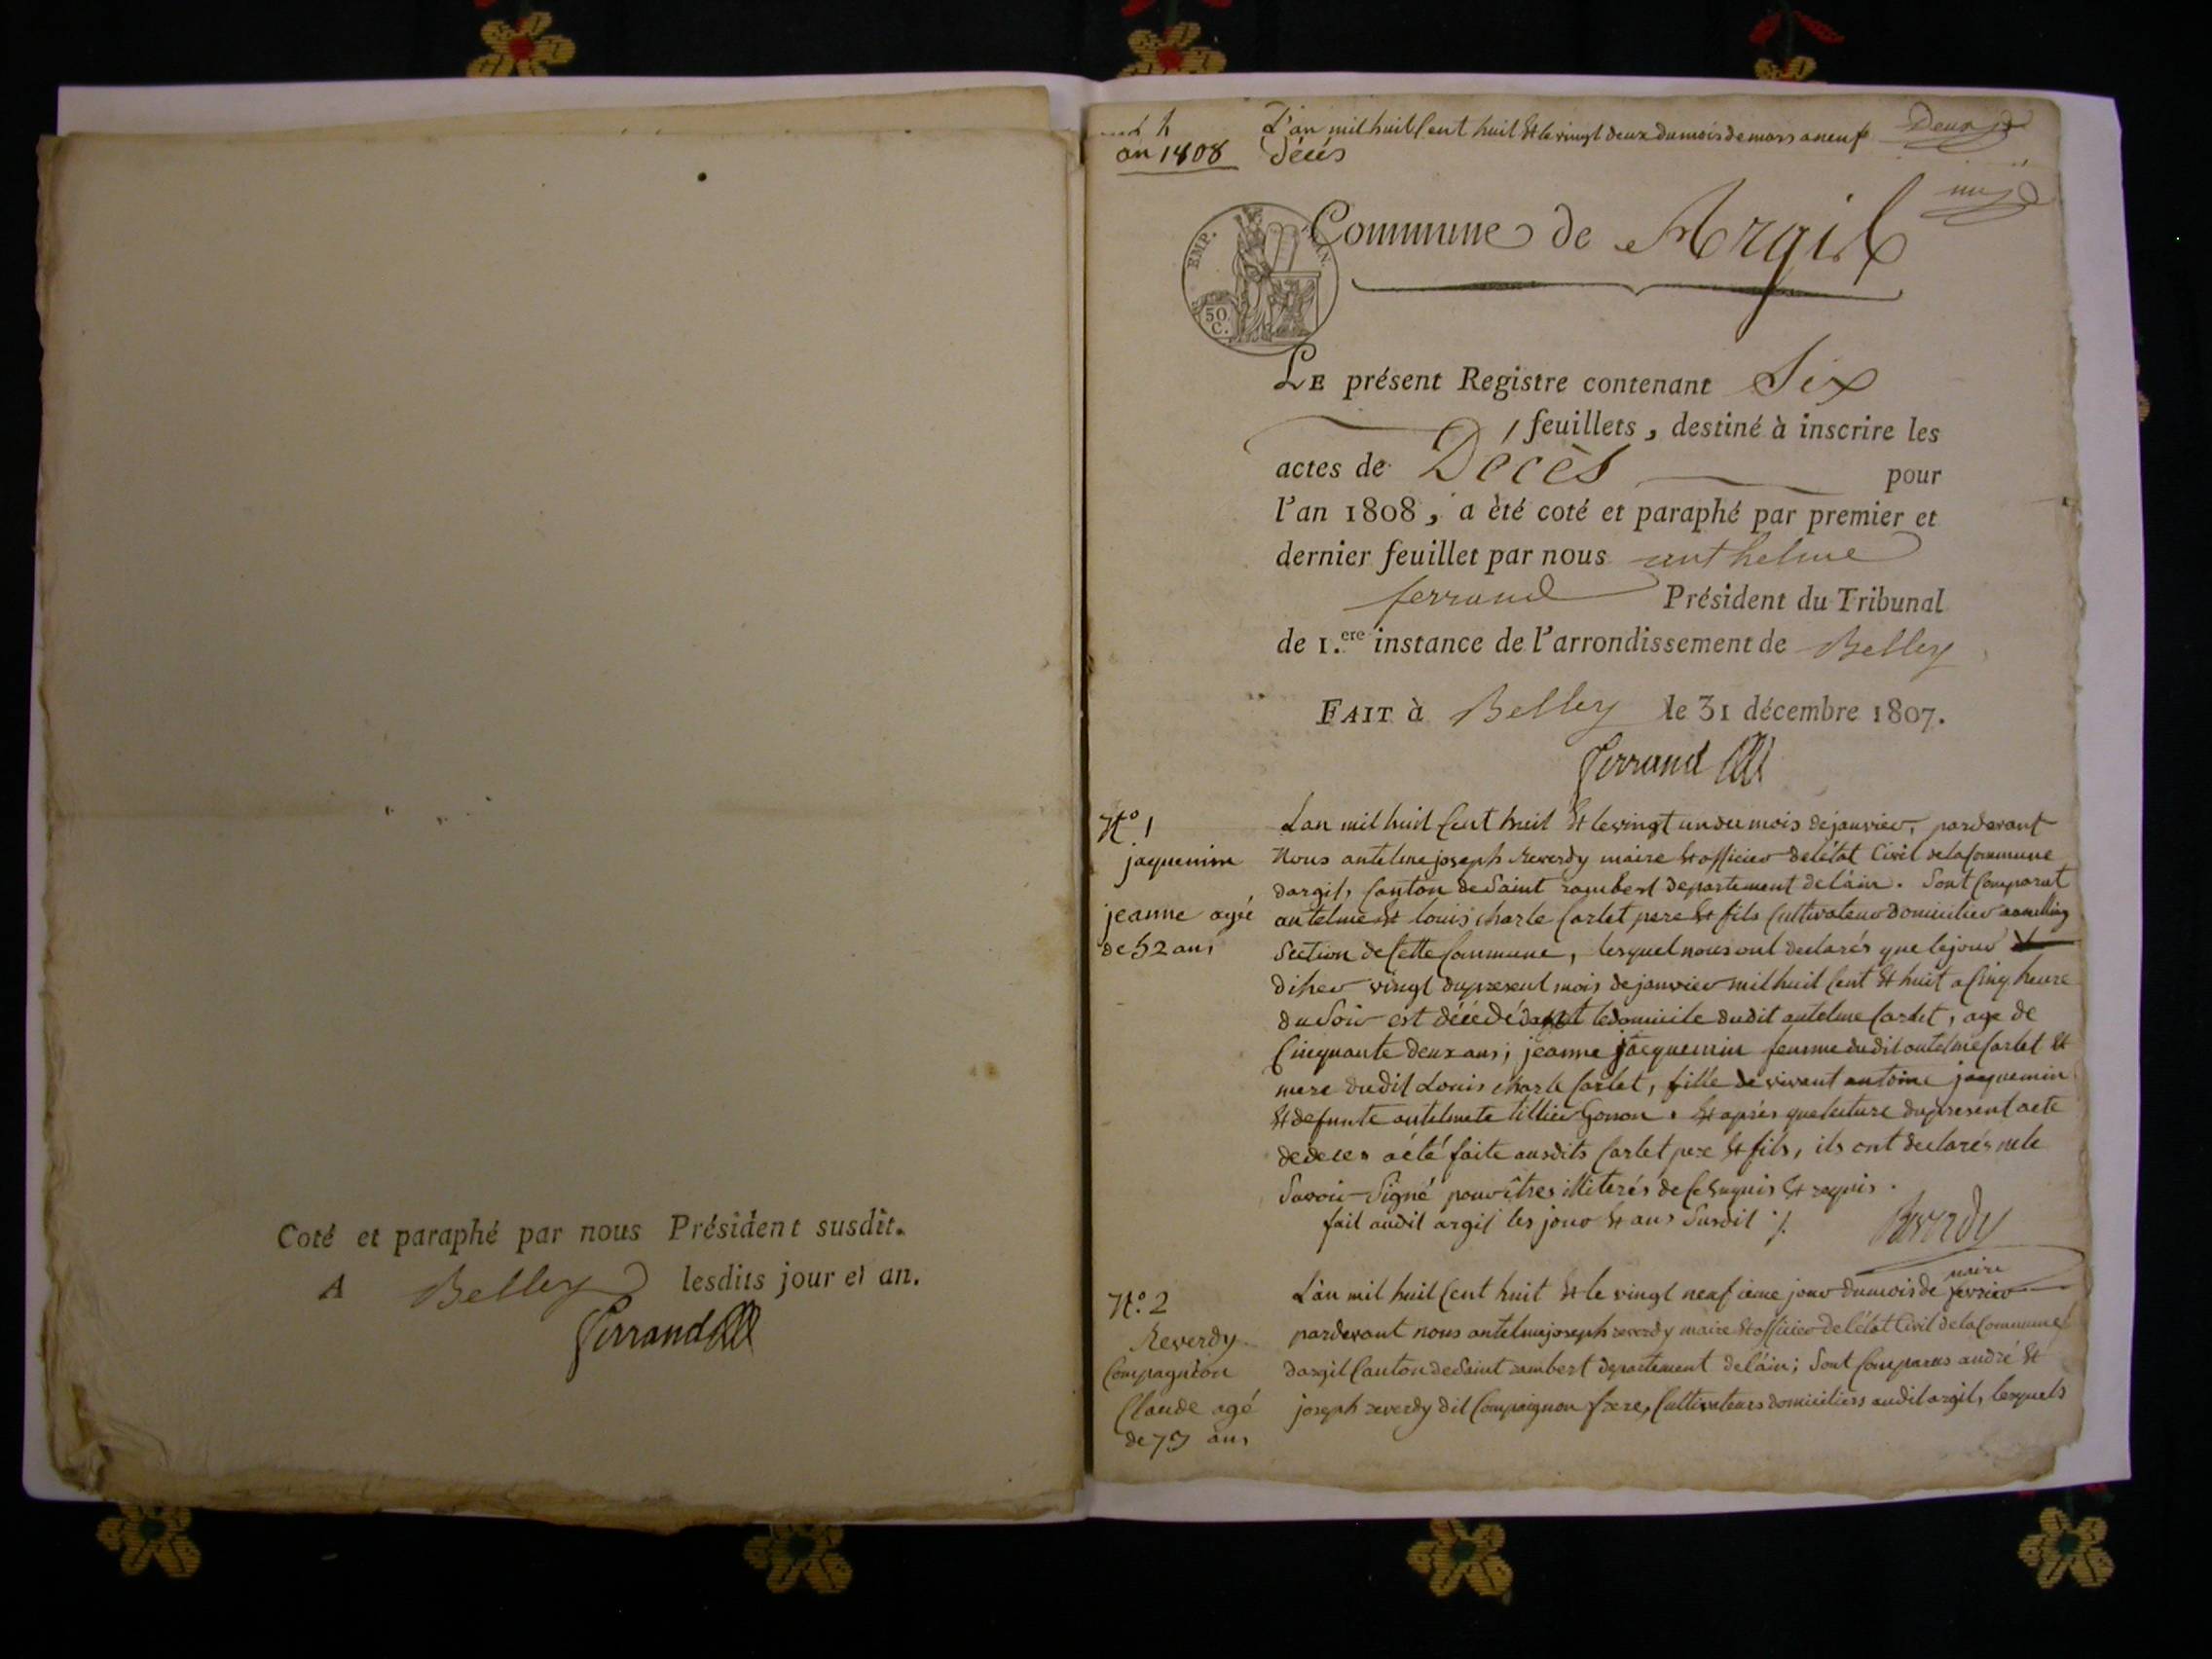 Coté et paraphé par nous Président susdit.
A Belley lesdits jour et an.
Ferrand
an 1808
L'an mil huit cent huit & le vingt deux du mois de mars a neuf
Décés
Deux
EMP.
50
C.
Commune de Argis
LE présent Registre contenant Six
feuillets, destiné à inscrire les
actes de Décès pour
l'an 1808, a èté coté et paraphé par premier et
dernier feuillet par nous anthelme
ferrand Président du Tribunal
de 1.ere instance de l'arrondissement de Belley
FAIT à Belley le 31 décembre 1807.
Ferrand
N.o 1
jaquemin
jeanne agée
de 52 ans
Lan mil huit cent huit & le vingt un du mois de janvier, pardevant
Nous antelme joseph Reverdy maire & officier de létat Civil de la Commune
dargis, Canton de Saint rambert departement de láin. Sont Comparut
antelme & louis charle Carlet pere & fils Cultivateur domicilier
Section de Cette Commune, lesquel nous ont declarés que le jour
diher vingt du present mois de janvier mil huit cent & huit a Cinq heure
du Soir est décédé le domicile dudit antelme Carlet, age de
Cinquante deux ans; jeanne jacquemin femme dudit antelme Carlet &
mere dudit Louis charle Carlet, fille de vivant antoine jaquemin
& defunte antelmete tillier Gonon. & après que lecture du present acte
de deces a été faite ausdits Carlet pere & fils, ils ont declarés ne le
Savoir Signé pour êtres illiterés de Ce enquis & requis.
fait audit argis les jour & ans Susdit ./.
Reverdy
maire
N.o 2
Reverdy
Compagnion
Claude agé
de 79 ans
L'an mil huit cent huit & le vingt neuf ieme jour du mois de fevrier
pardevant nous antelme joseph reverdy maire & officier de létat Civil de la Commune
dargis Canton de Saint rambert departement de láin; Sont Comparus andré &
joseph reverdy dit Compaignon frere, Cultivateurs domiciliers audit argis, lesquels